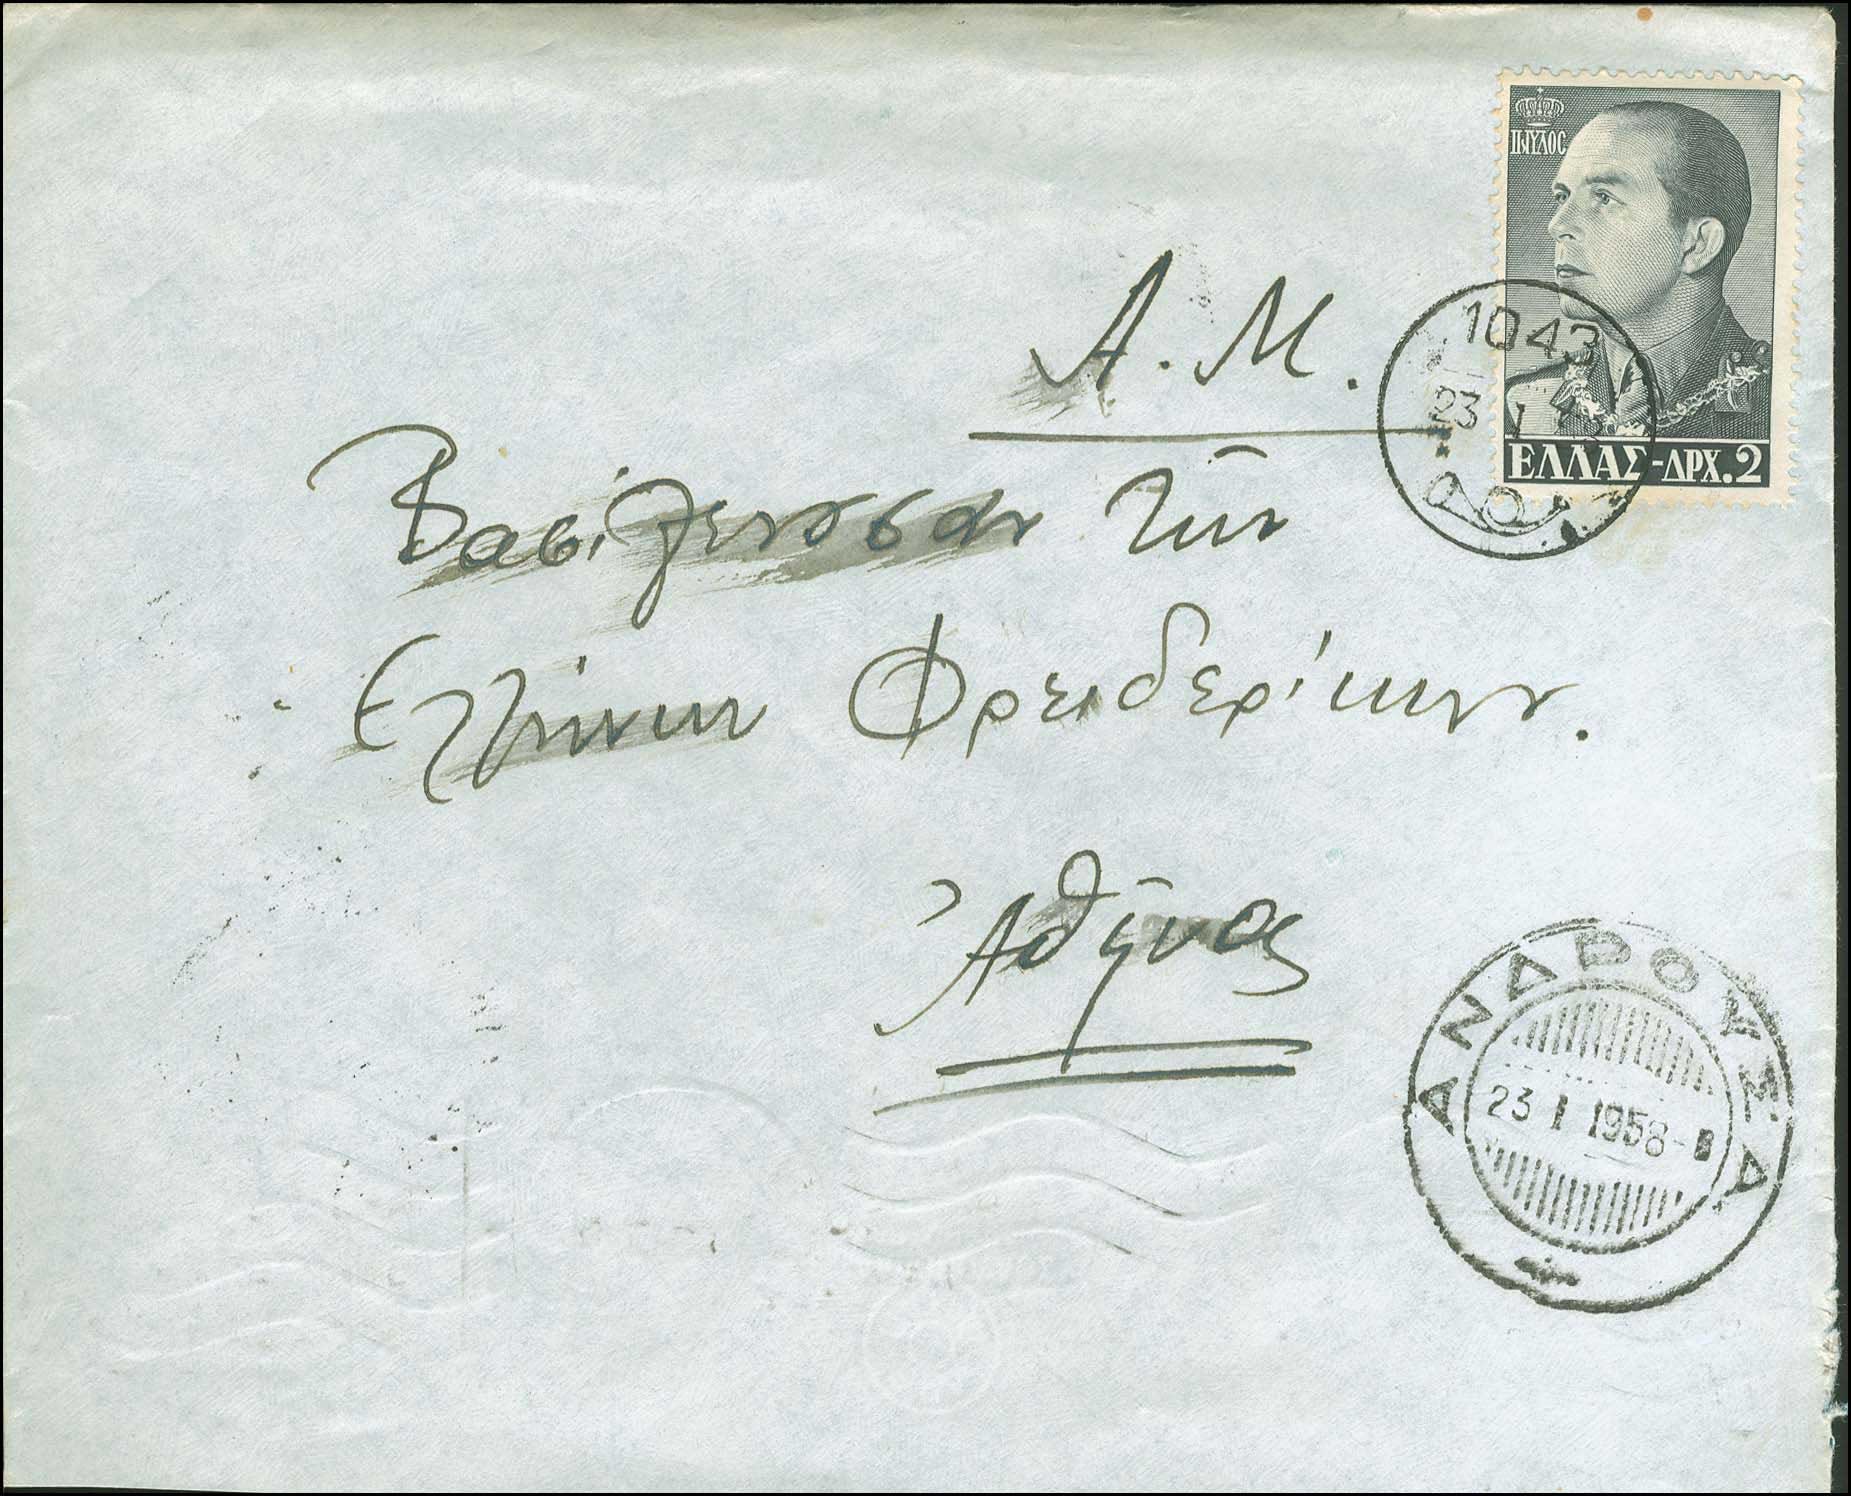 ΠΑΥΛΟΣ
ΕΛΛΑΣ-ΔΡΧ.2
1043
23 I
Α.Μ.
Βασίλευσσαν τῶν
Ελλήνων Φρειδερίκην.
Ἀθήνας
ΑΝΔΡΟΥΣΑ
23 I 1958-